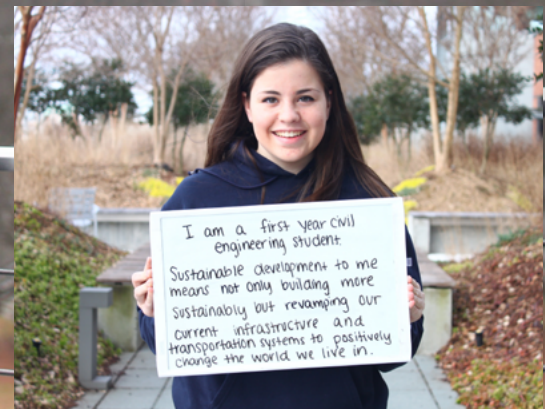 I am a first year civil
engineering student.
Sustainable development to me
means not only building more
sustainably but revamping our
current infrastructure and
transportation systems to positively
change the world we live in.